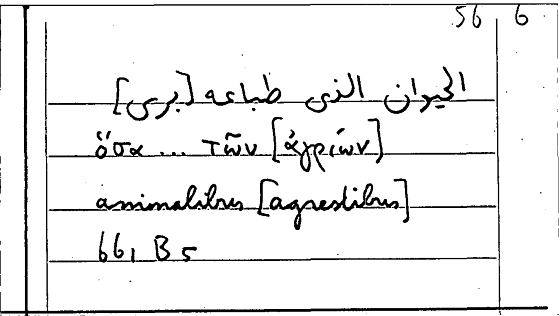 56, 6
الحيوان الذى طباعه [برى]
ὅσα ... τῶν [ἀγρίων]
animalibus [agrestibus]
66, B 5